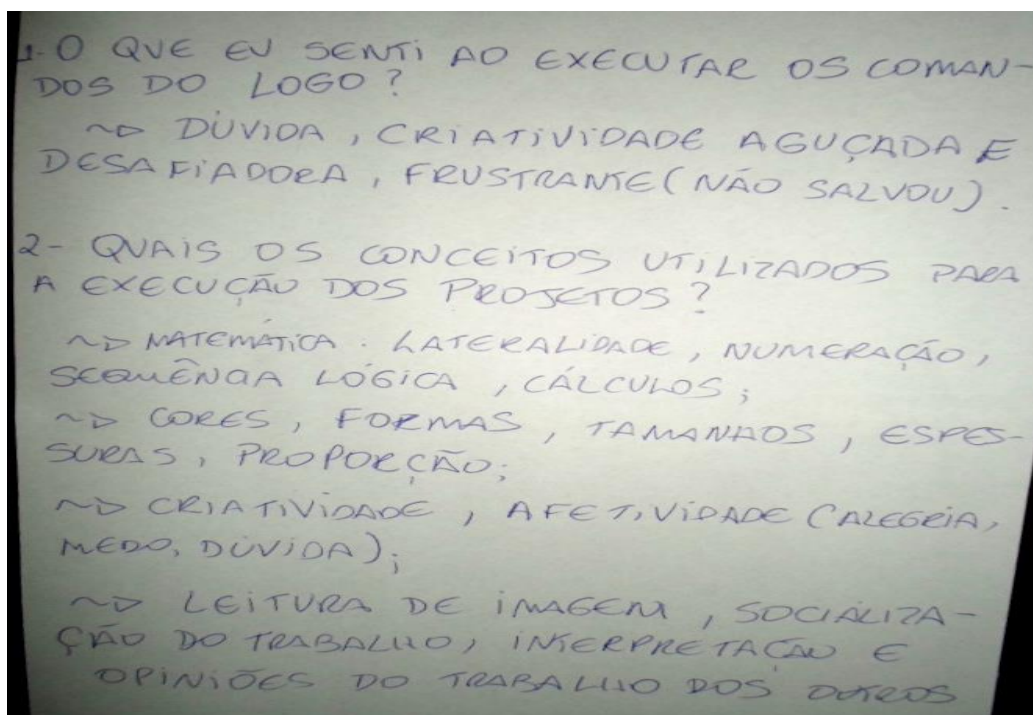 1- O QUE EU SENTI AO EXECUTAR OS COMAN-
DOS DO LOGO?
~> DÚVIDA, CRIATIVIDADE AGUÇADA E
DESAFIADORA, FRUSTRANTE (NÃO SALVOU).
2- QUAIS OS CONCEITOS UTILIZADOS PARA
A EXECUÇÃO DOS PROJETOS?
~> MATEMÁTICA. LATERALIDADE, NUMERAÇÃO,
SEQUÊNCIA LÓGICA, CÁLCULOS;
~> CORES, FORMAS, TAMANHOS, ESPES-
SURAS, PROPORÇÃO;
~> CRIATIVIDADE, AFETIVIDADE (ALEGRIA,
MEDO, DÚVIDA);
~> LEITURA DE IMAGEM, SOCIALIZA-
ÇÃO DO TRABALHO, INTERPRETAÇÃO E
OPINIÕES DO TRABALHO DOS OUTROS